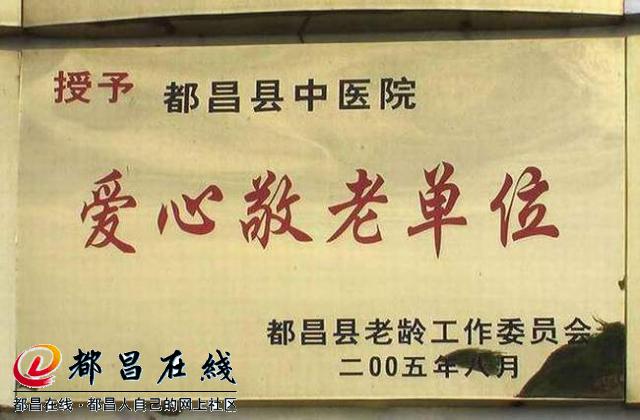 授予 都昌县中医院
爱心敬老单位
都昌县老龄工作委员会
二00五年八月
都昌在线
都昌在线·都昌人自己的网上社区